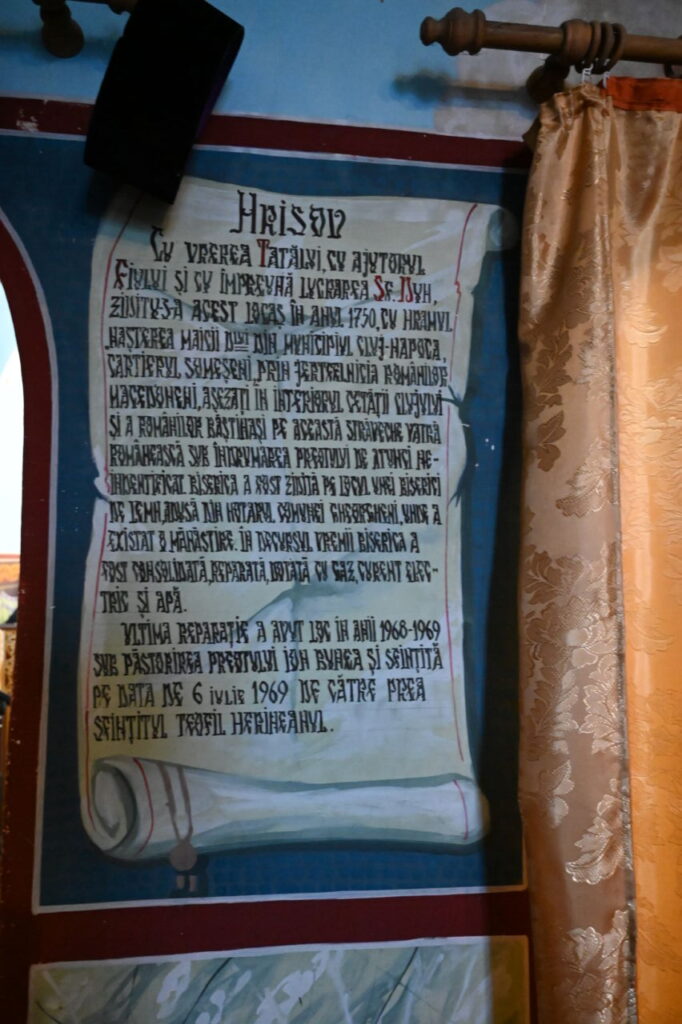 Hrisov
Cu vrerea Tatălui, cu ajutorul
Fiului și cu împreună lucrarea Sf. Duh,
ziditu-s-a acest locaș în anul 1750, cu hramul
„Nașterea Maicii D-lui" din municipiul Cluj-Napoca,
cartierul Someșeni, prin jertfelnicia românilor
macedoneni, așezați în interiorul cetății Clujului
și a românilor băștinași pe această străveche vatră
românească sub îndrumarea preotului de atunci ne-
indentificat. Biserica a fost zidită pe locul unei biserici
de lemn, adusă din hotarul comunei Gheorgheni, unde a
existat o mănăstire. În decursul vremii biserica a
fost consolidată, reparată, dotată cu gaz, curent elec-
tric și apă.
Ultima reparație a avut loc în anii 1968-1969
sub păstorirea preotului Ion Bunea și sfințită
pe data de 6 iulie 1969 de către Prea
Sfințitul Teofil Herineanul.